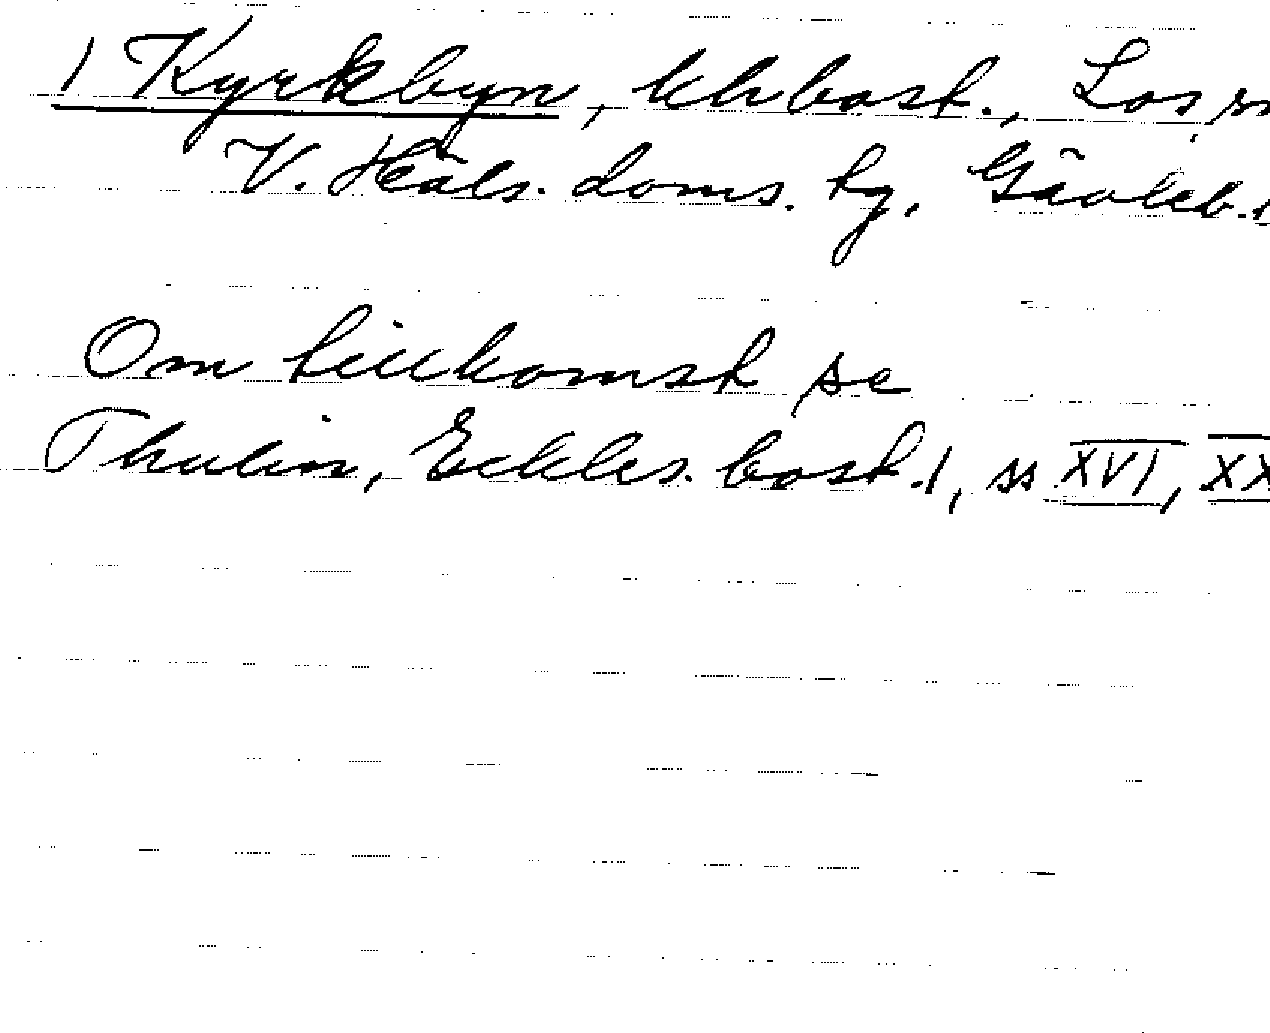 1 Kyrkbyn, khbost., Los,
V. Häls. doms. tg, Gävleb.
Om tillkomst se
Thulin, Eckles. bost. 1, ss XVI, XX